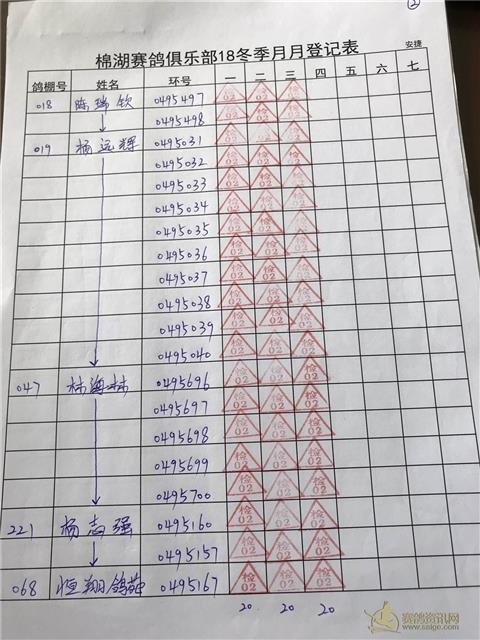 ②
棉湖赛鸽俱乐部18冬季月月登记表
安捷
鸽棚号 姓名 环号 一 二 三 四 五 六 七
018 陈瑞钦 0495497 检02 检02 检02
0495498 检02 检02 检02
019 杨远辉 0495031 检02 检02 检02
0495032 检02 检02 检02
0495033 检02 检02 检02
0495034 检02 检02 检02
0495035 检02 检02 检02
0495036 检02 检02 检02
0495037 检02 检02 检02
0495038 检02 检02 检02
0495039 检02 检02 检02
0495040 检02 检02 检02
047 林海林 0495696 检02 检02 检02
0495697 检02 检02 检02
0495698 检02 检02 检02
0495699 检02 检02 检02
0495700 检02 检02 检02
221 杨志强 0495160 检02 检02 检02
0495157 检02 检02 检02
068 恒翔鸽苑 0495167 检02 检02 检02
20 20 20
赛鸽资讯网
www.saige.com